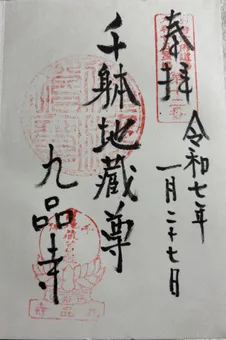 奉拝
令和七年
一月二十七日
千躰地蔵尊
九品寺